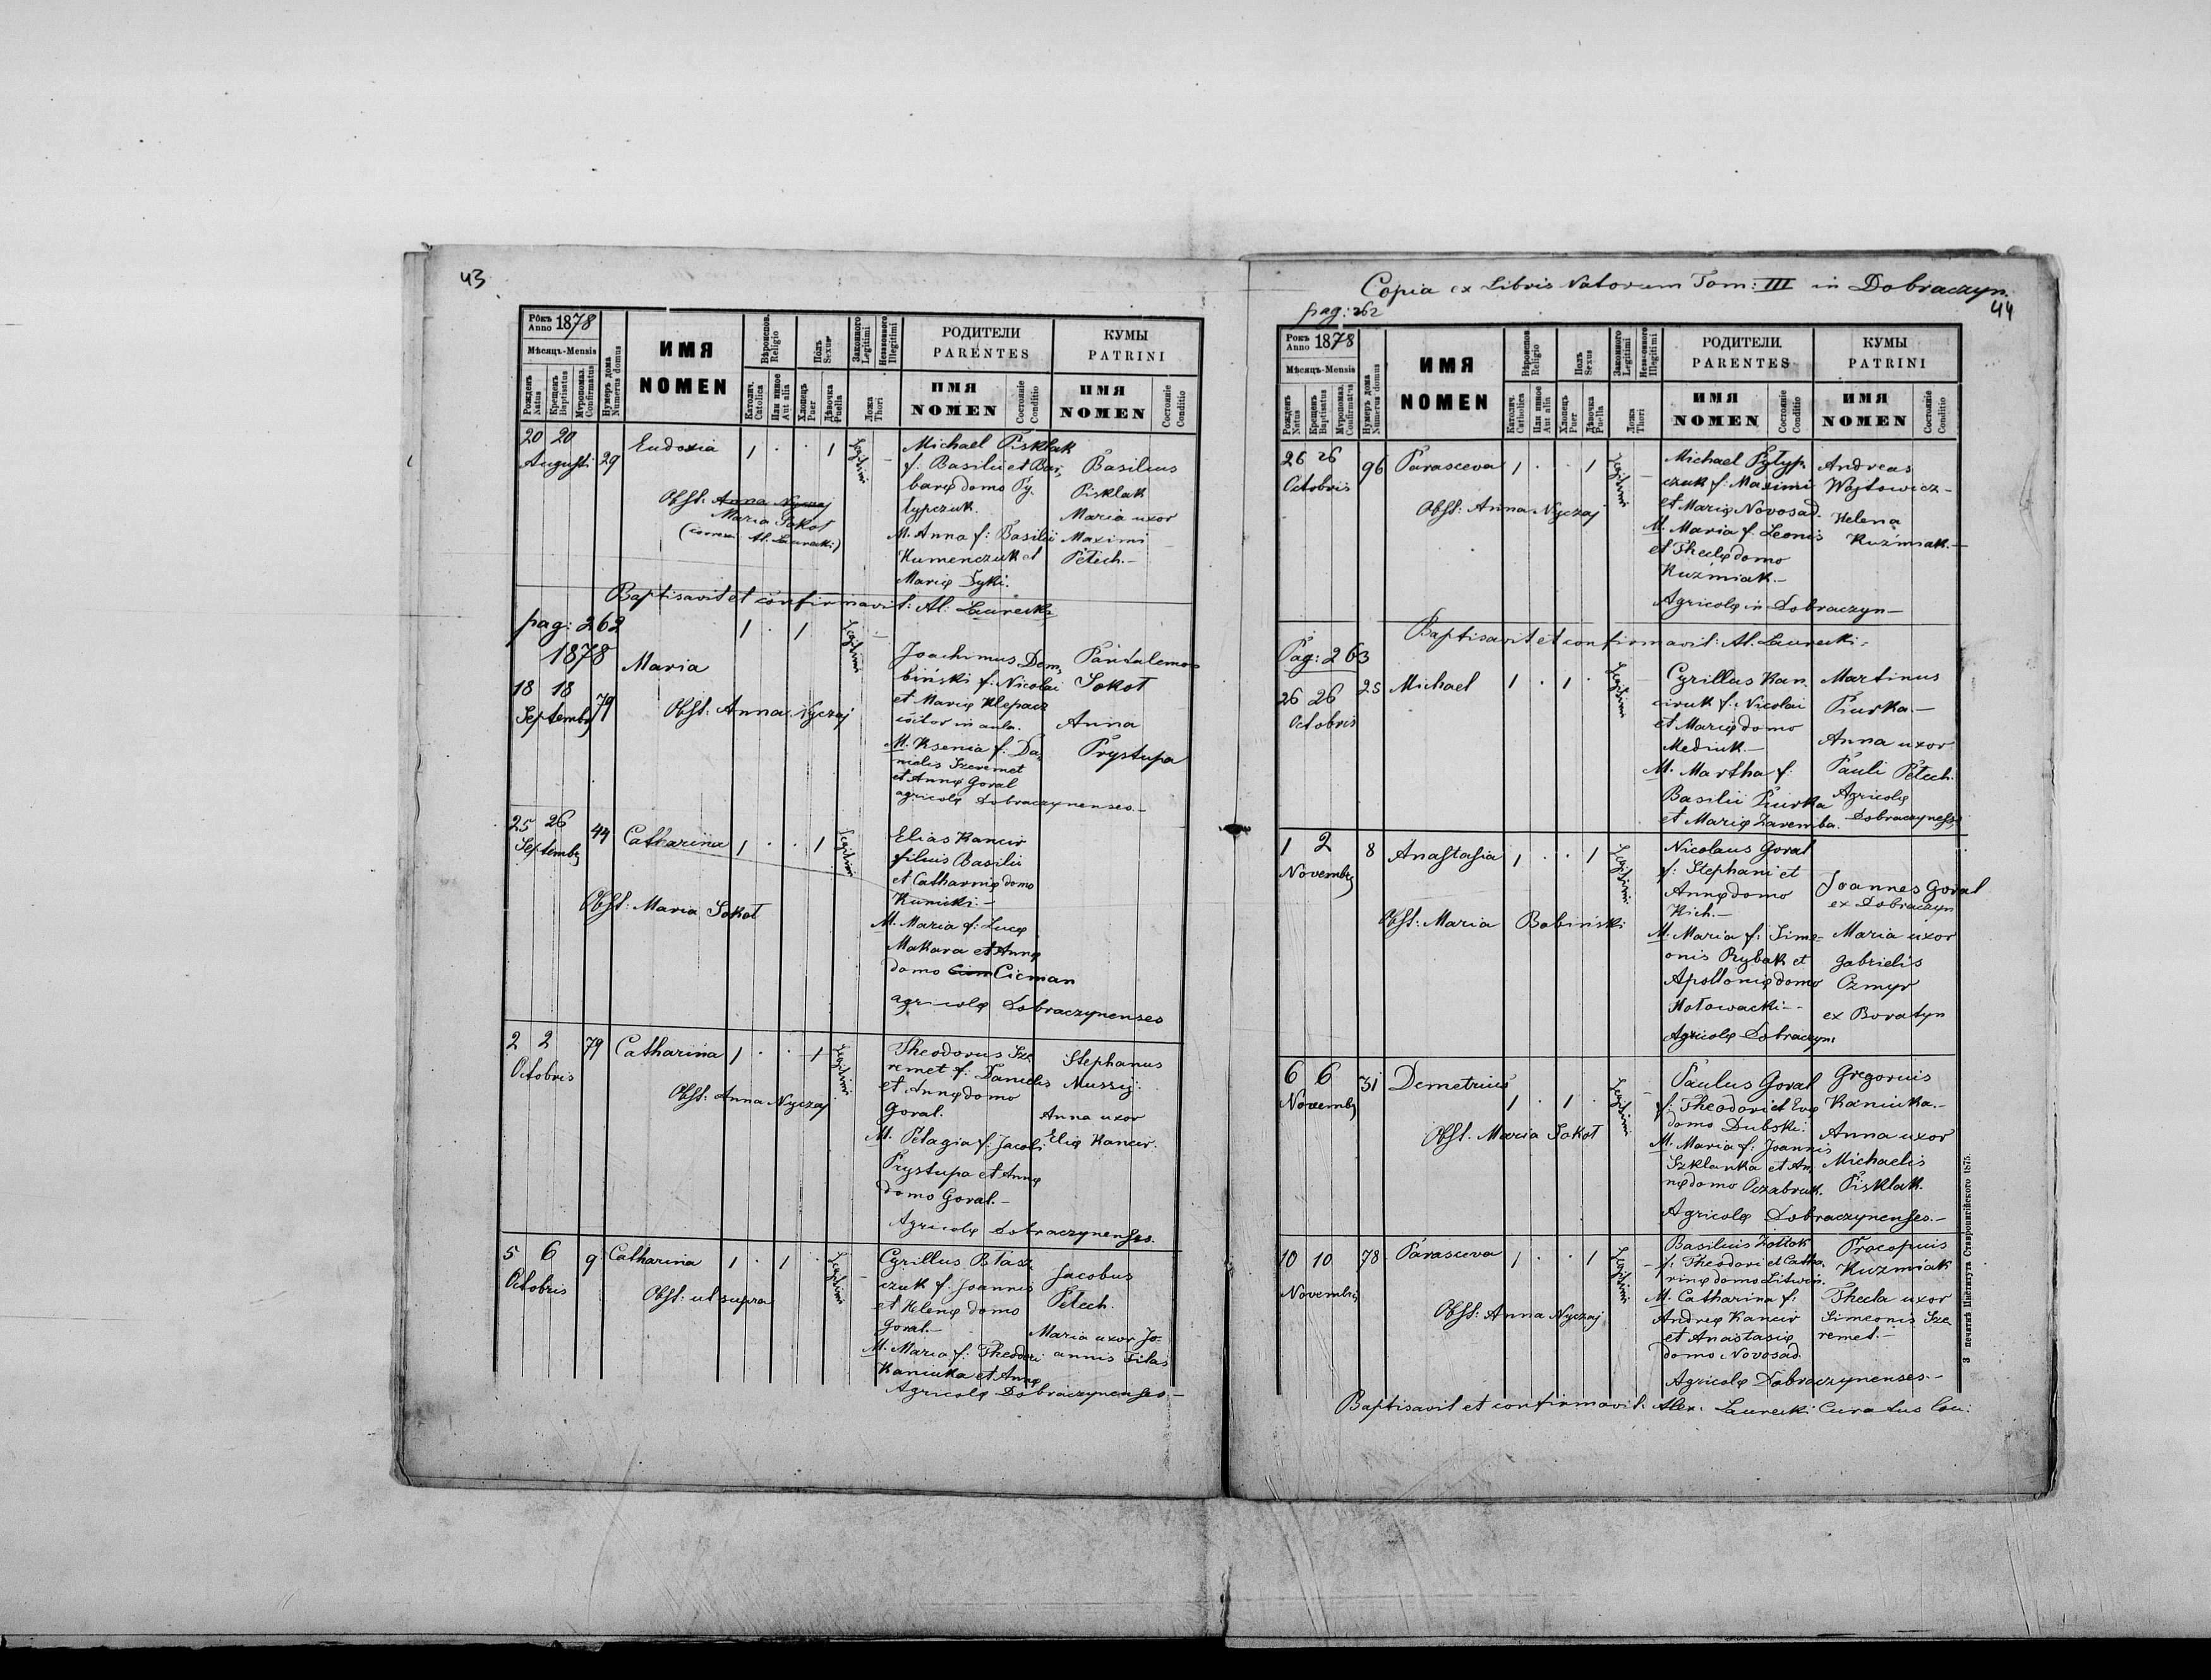 43
Рôкъ Anno 1878
Мѣсяцъ-Mensis
Рожденъ Natus
Крещенъ Baptisatus
Мvропомаз. Confirmatus
Нумеръ дома Numerus domus
ИМЯ
NOMEN
Вѣроиспов. Religio
Католич. Catolica
Или инное Aut alia
Полъ Sexus
Хлопецъ Puer
Дѣвочка Puella
Законного Legitimi
Незаконного Illegitimi
Ложа Thori
РОДИТЕЛИ
PARENTES
ИМЯ
NOMEN
Состояніе Conditio
КУМЫ
PATRINI
ИМЯ
NOMEN
Состояніе Conditio
20 20 29 Eudoxia 1 · · 1 Legitimi
Augusti
Obst: Anna Nyczaj
Maria Sokoł
(correxi Al. Laurecki)
Michael Pisklak
f: Basilii et Bar,
barę domo Py,
typczuk.
M. Anna f: Basilii
Kumenczuk et
Marię Dyki.
Basilius
Pisklak
Maria uxor
Maximi
Petech.-
Baptisavit et confirmavit: Al: Laurecki
pag: 262
1878 Maria 1 · 1 Legitimi
18 18 79
Septembr
Obst: Anna Nyczaj
Joachimus Dem,
biński f: Nicolai
et Marię Klepacz
in aula.
M. Ksenia f: Da,
nielis Szeremet
et Annę Goral
agricolę Dobraczynenses.-
Pantalemon
Sokoł
Anna
Prystupa
25 26 44 Catharina 1 · · 1 Legitimi
Septembr
Obst: Maria Sokoł
Elias Kancir
filius Basilii
et Catharinę domo
Kunicki.-
M. Maria f: Lucę
Makara et Annę
domo Cicman
agricolę Dobraczynenses
2 2 79 Catharina 1 · · 1 Legitimi
Octobris
Obst: Anna Nyczaj
Theodorus Sze
remet f: Danielis
et Annę domo
Goral.
M. Pelagia f: Jacobi
Prystupa et Annę
domo Goral.-
Agricolę Dobraczynenses.
Stephanus
Mussij.
Anna uxor
Elię Kancir.
5 6 9 Catharina 1 · 1 · Legitimi
Octobris
Obst: ut supra
Cyrillus Błasz
czuk f: Joannis
et Helenę domo
Goral.-
M. Maria f: Theodori
Kaniuka et Annę
Agricolę Dobraczynenses.-
Jacobus
Petech.
Maria uxor Jo
annis Filas
Copia ex Libris Natorum Tom: III in Dobraczyn.
pag: 262
44
Рокъ Anno 1878
Мѣсяцъ-Mensis
Рожденъ Natus
Крещенъ Baptisatus
Мvропомаз. Confirmatus
Нумеръ дома Numerus domus
ИМЯ
NOMEN
Вѣроиспов. Religio
Католич. Catholica
Или инное Aut alia
Полъ Sexus
Хлопецъ Puer
Дѣвочка Puella
Законного Legitimi
Незаконного Illegitimi
Ложа Thori
РОДИТЕЛИ
PARENTES
ИМЯ
NOMEN
Состояніе Conditio
КУМЫ
PATRINI
ИМЯ
NOMEN
Состояніе Conditio
26 26 96 Parasceva 1 · · 1 Legitimi
Octobris
Obst: Anna Nyczaj
Michael Pyłyp.
czuk f: Maximi
et Marię Novosad.
M. Maria f: Leonis
et Theclę domo
Kuźmiak.-
Agricolę in Dobraczyn-
Andreas
Wojtowicz-
Helena
Kuźmiak.-
Baptisavit et confirmavit: Al. Laurecki.
Pag: 263
26 26 25 Michael 1 · 1 · Legitimi
Octobris
Cyrillus Kan.
ciruk f: Nicolai
et Marię domo
Mediuk.-
M. Martha f:
Basilii Piurka
et Marię Zaremba.
Martinus
Piurka.-
Anna uxor
Pauli Petech.
Agricolę
Dobraczynenses
1 2 8 Anastasia 1 · · 1 Legitimi
Novembr
Obst: Maria Babiński
Nicolaus Goral
f: Stephani et
Annę domo
Kich.-
M. Maria f: Sime-
onis Rybak et
Apollonię domo
Hołowacki--
Agricolę Dobraczyn:
Joannes Goral
ex Dobraczyn
Maria uxor
Gabrielis
Czmyr
ex Boratyn
6 6 31 Demetrius 1 · 1 · Legitimi
Novembr
Obst. Maria Sokoł
Paulus Goral
f: Theodori et Evę
domo Dubski.
M. Maria f: Joannis
Szklanka et An,
nę domo Oczabruk.
Agricolę Dobraczynenses.-
Gregorius
Kaniuka.-
Anna uxor
Michaelis
Pisklak.
10 10 78 Parasceva 1 · · 1 Legitimi
Novembr
Obst: Anna Nyczaj
Basilius Zołtok
f: Theodori et Catha,
rinę domo Litwin.
M. Catharina f:
Andreę Kancir
et Anastasię
domo Novosad.
Agricolę Dobraczynenses.-
Procopius
Kuzmiak
Thecla uxor
Simeonis Sze
remet.-
Baptisavit et confirmavit: Alex: Laurecki Curatus
З печатнѣ Института Ставропигійского 1875.